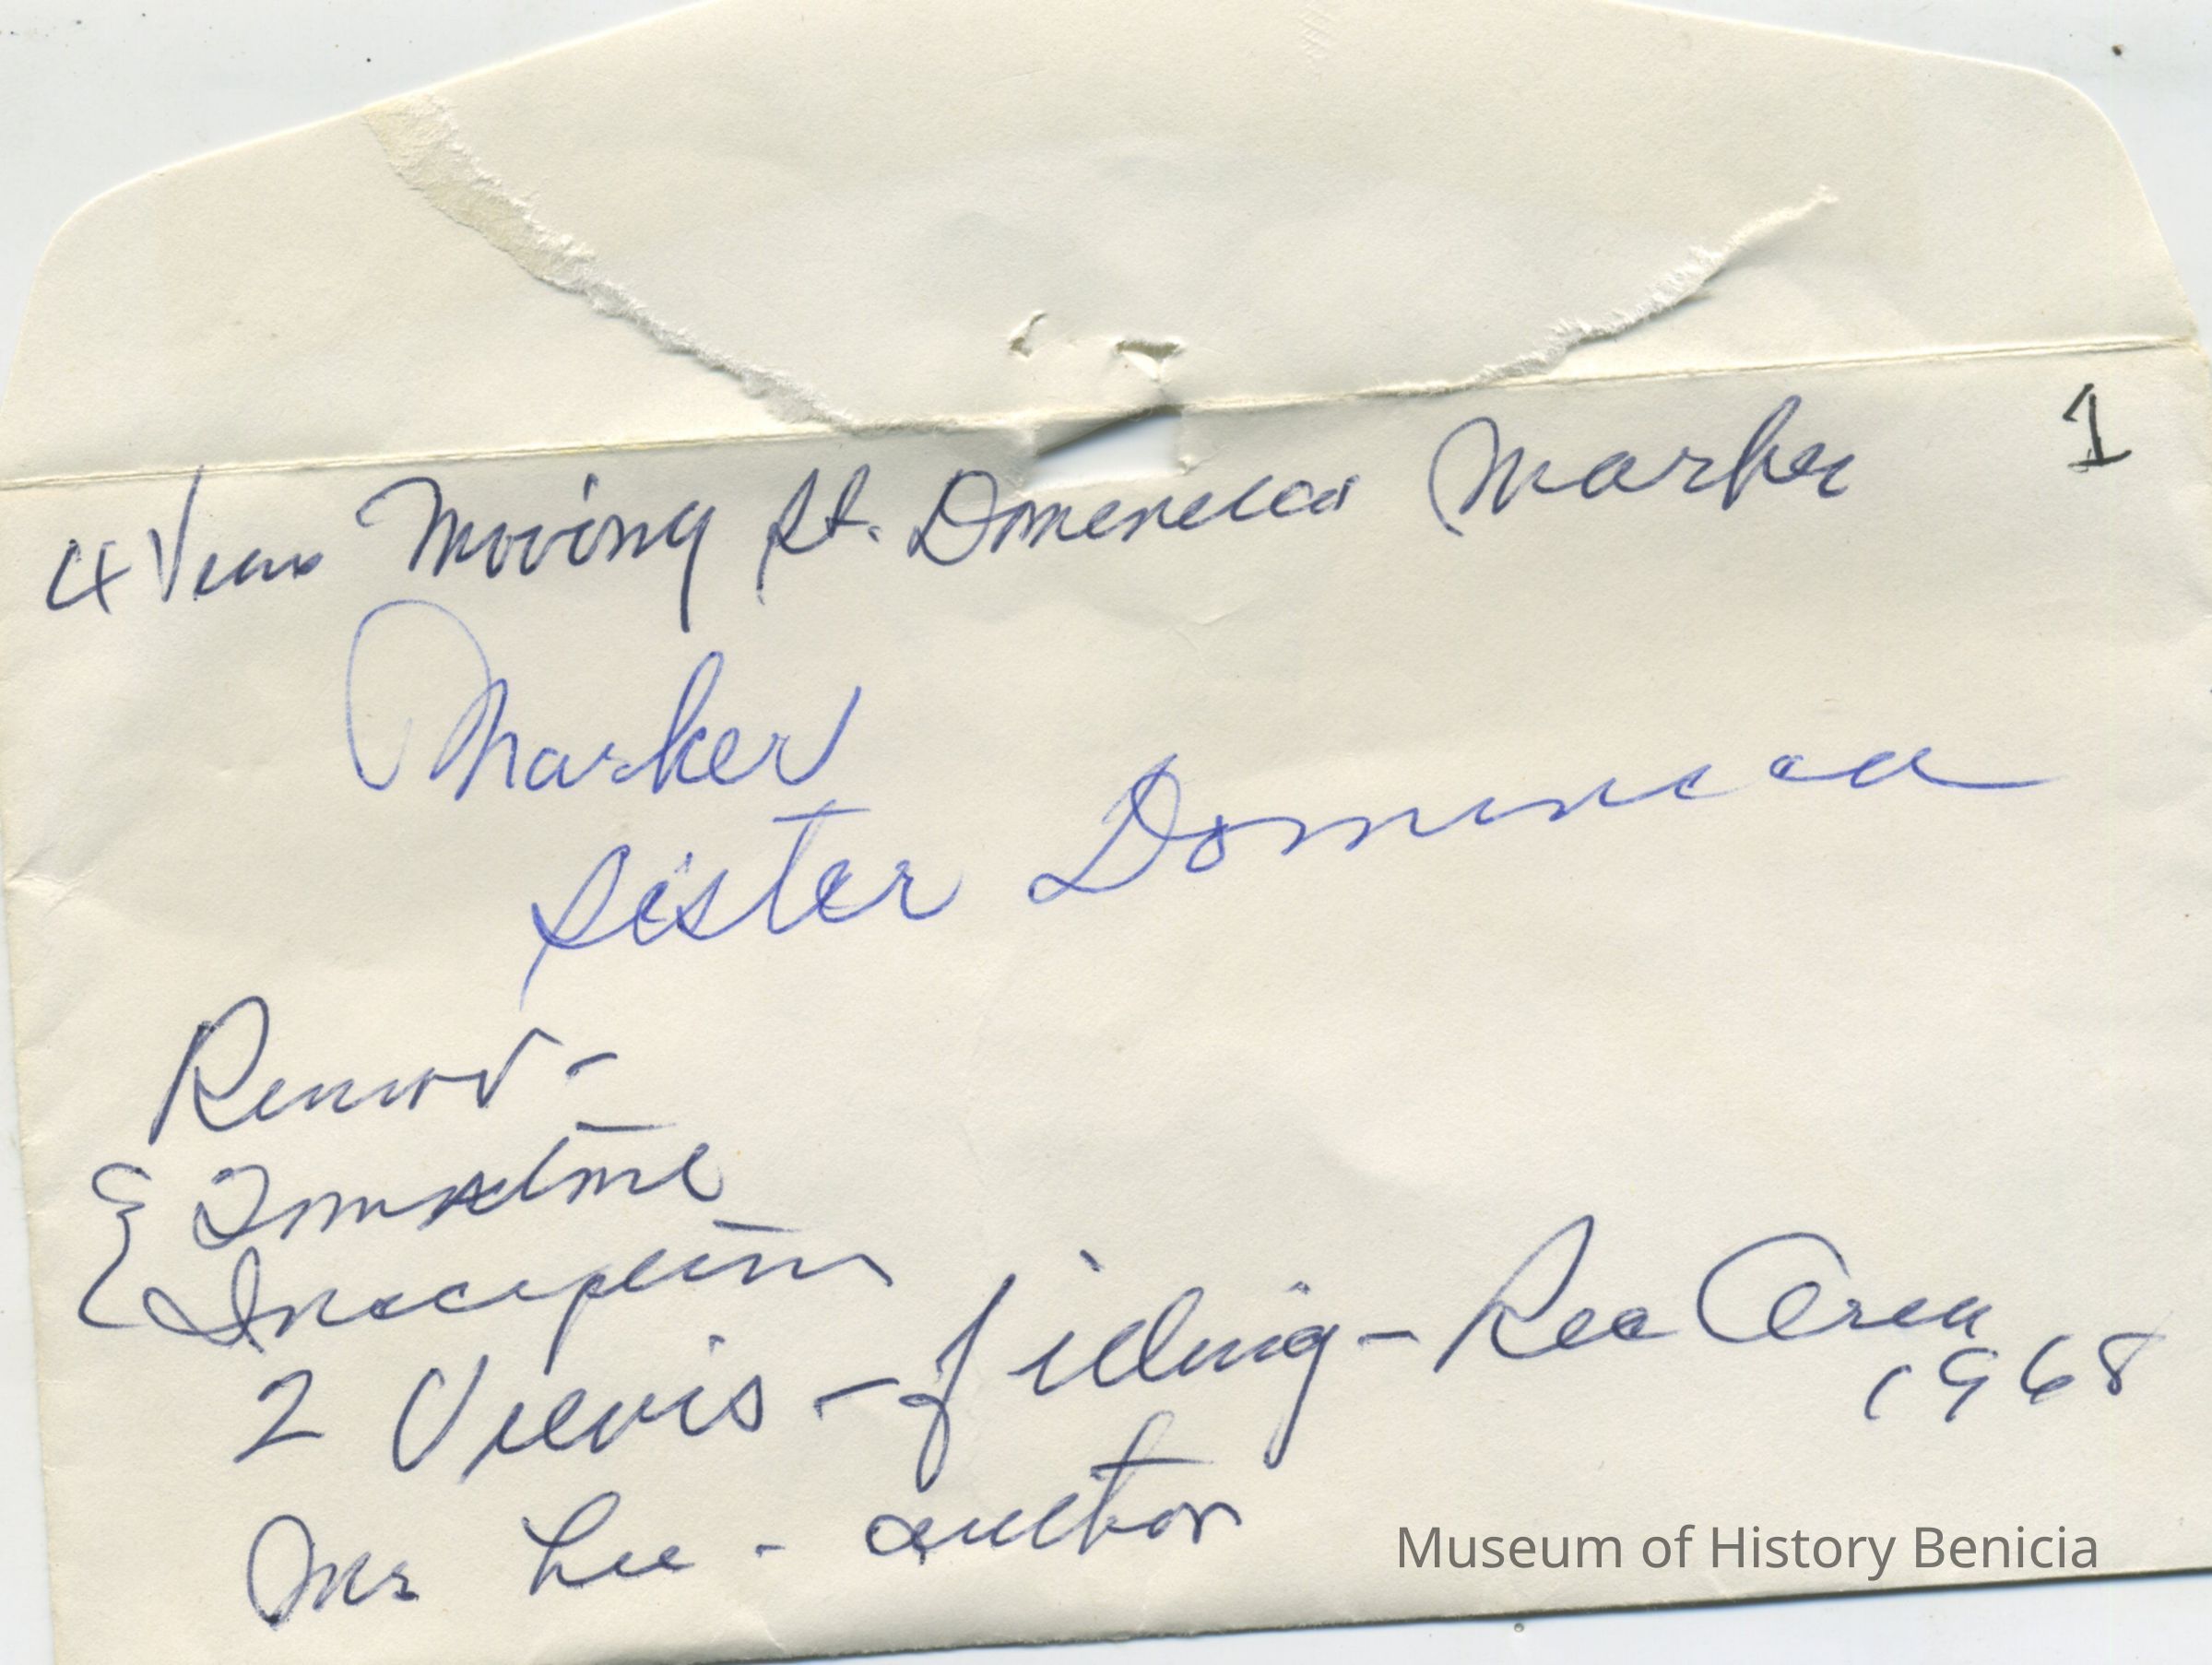 4 Views Moving St. Domenicas Marker 1
Marker
Sister Dominica
Remov -
{ Tombstone
Inscription
2 Views - filling - Rec Area
1968
Mr Lee - author
Museum of History Benicia